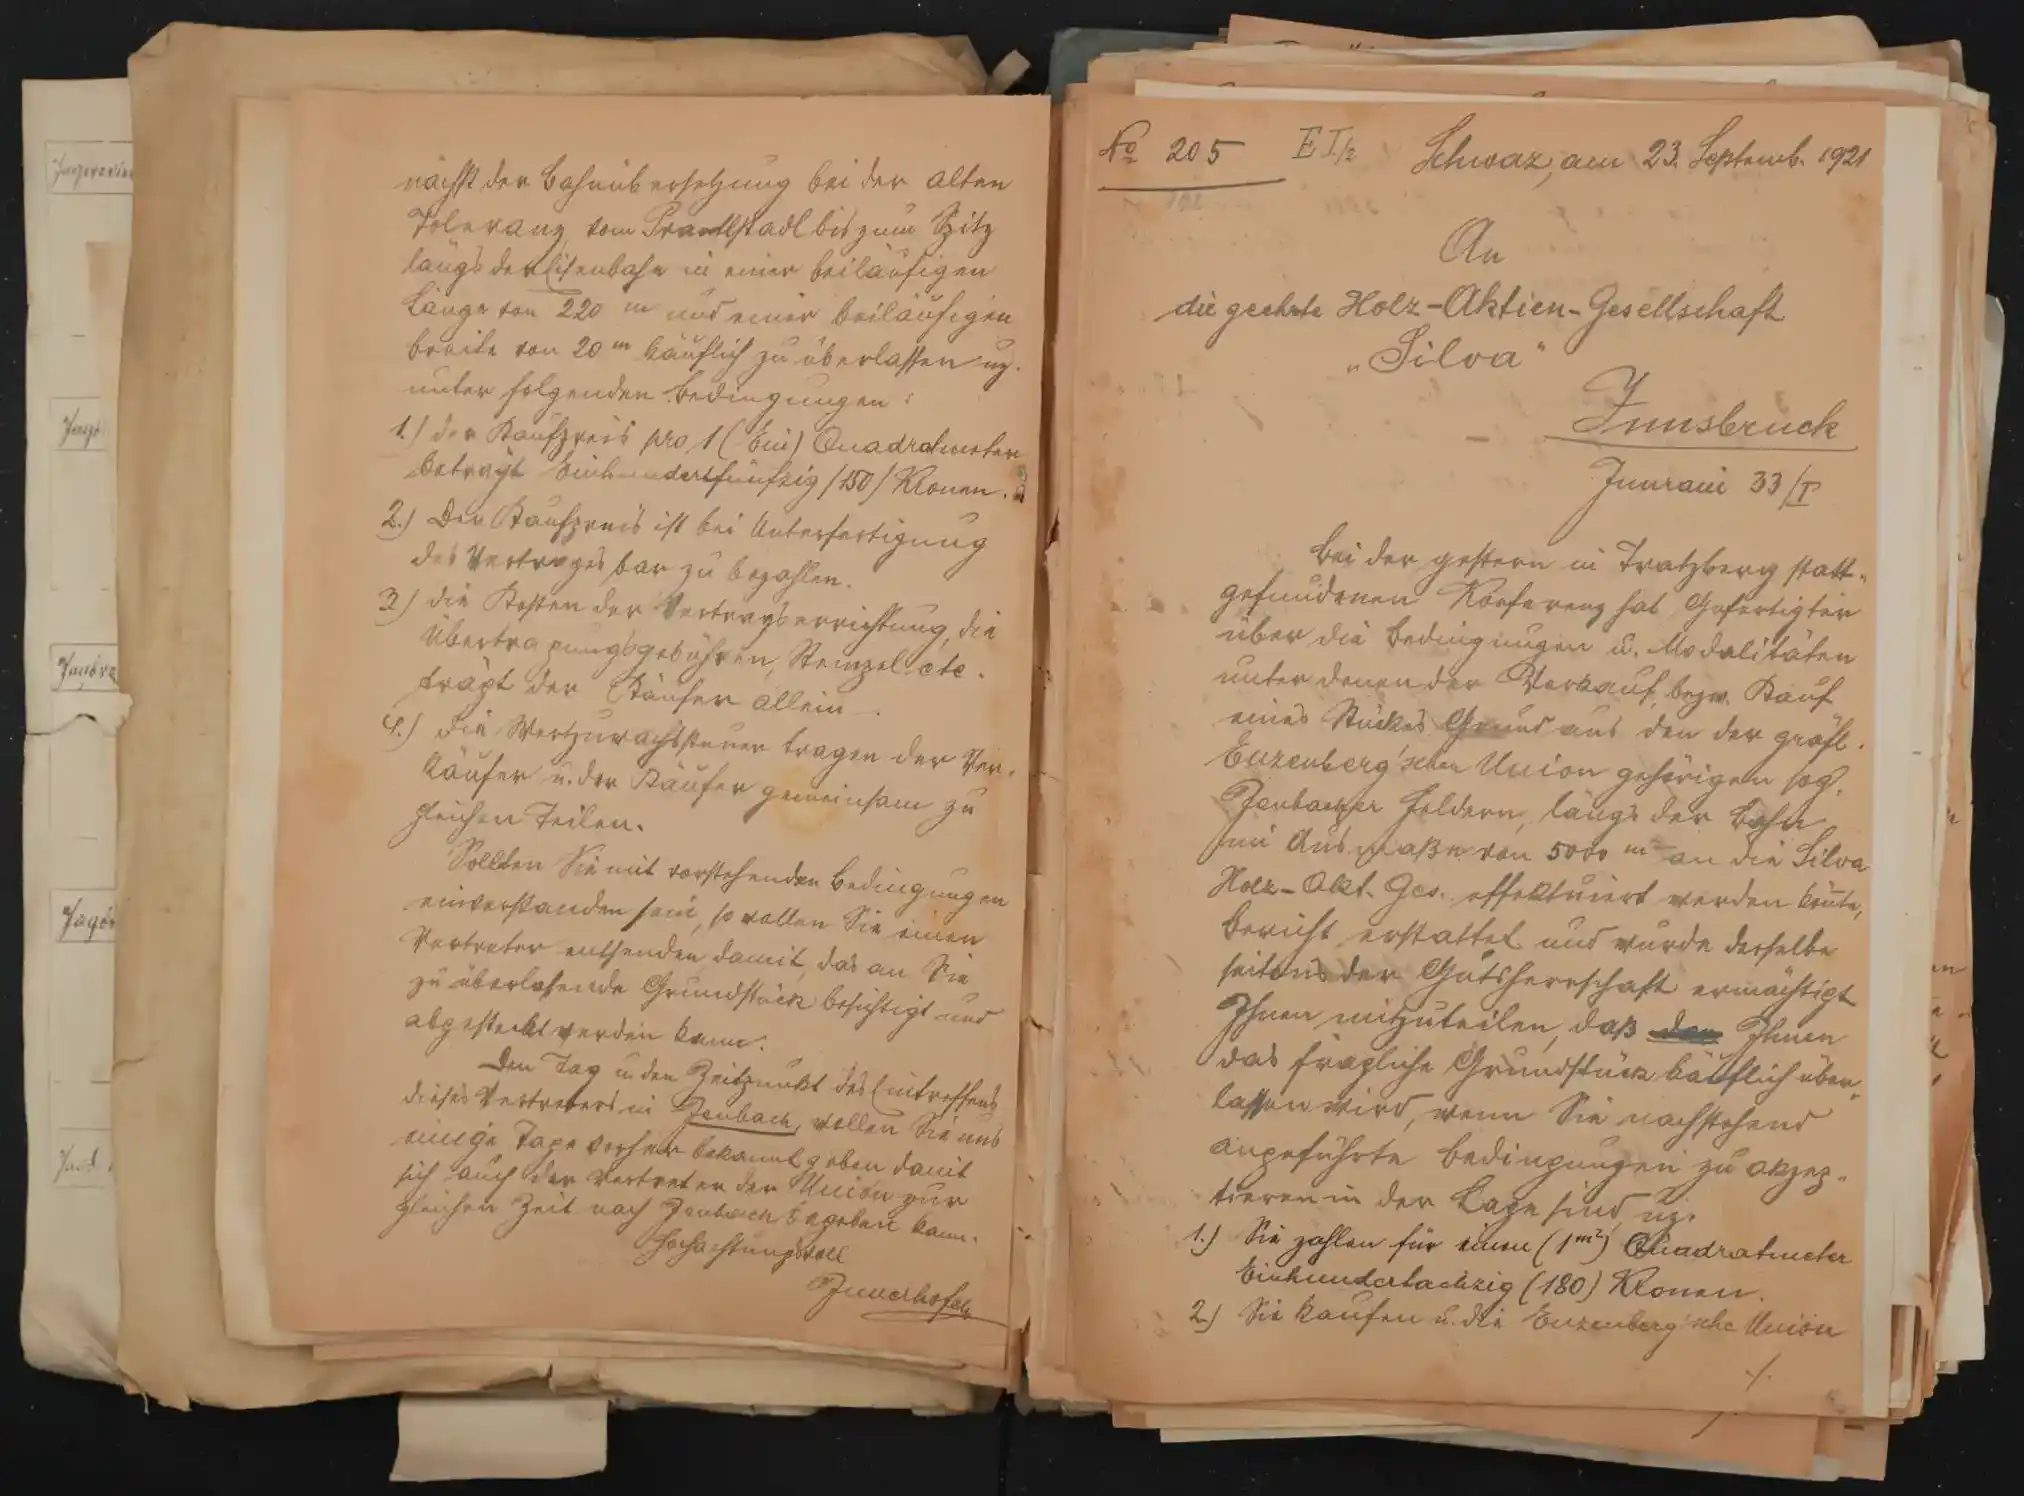 nächst der Bahnübersetzung bei der alten
Toleranz, vom Prantlstadl bis zum Spitz
längs der Eisenbahn in einer beiläufigen
Länge von 220 m und einer beiläufigen
Breite von 20 m käuflich zu überlassen uz.
unter folgenden Bedingungen:
1.) der Kaufpreis pro 1 (Ein) Quadratmeter
beträgt Einhundertfünfzig /150/ Kronen.
2.) Der Kaufpreis ist bei Unterfertigung
des Vertrages bar zu bezahlen.
3) die Kosten der Vertragserrichtung, die
Übertragungsgebühren, Stempel etc.
trägt der Käufer allein.
4.) Die Wertzuwachssteuer tragen der Ver-
käufer u. der Käufer gemeinsam zu
gleichen Teilen.
Sollten Sie mit vorstehenden Bedingungen
einverstanden sein, so wollen Sie einen
Vertreter entsenden damit, das an Sie
zu überlassende Grundstück besichtigt und
abgesteckt werden kann.
Den Tag u. den Zeitpunkt des Eintreffens
dieses Vertreters in Jenbach, wollen Sie uns
einige Tage vorher bekannt geben damit
sich auch der Vertreter der Union zur
gleichen Zeit nach Jenbach begeben kann.
Hochachtungsvoll
Innerhofer
No 205 E I/2 Schwaz, am 23. Septemb. 1921
An
die geehrte Holz-Aktien-Gesellschaft
„Silva"
Innsbruck
Innrain 33/I
Bei der gestern in Tratzberg statt-
gefundenen Konferenz hat Gefertigter
über die Bedingungen u. Modalitäten
unter denen der Verkauf, bezw. Kauf
eines Stückes Grund aus den der gräfl.
Enzenberg'schen Union gehörigen sog.
Jenbacher Feldern, längs der Bahn
im Ausmaße von 5000 m² an die Silva
Holz-Akt. Ges. effektuiert werden könnte,
Bericht erstattet und wurde derselbe
seitens der Gutsherrschaft ermächtigt
Ihnen mitzuteilen, daß Ihnen
das fragliche Grundstück käuflich über-
lassen wird, wenn Sie nachstehend
angeführte Bedingungen zu akzep-
tieren in der Lage sind, uz.
1.) Sie zahlen für einen (1 m²) Quadratmeter
Einhundertachtzig (180) Kronen.
2.) Sie kaufen u. die Enzenberg'sche Union
./.